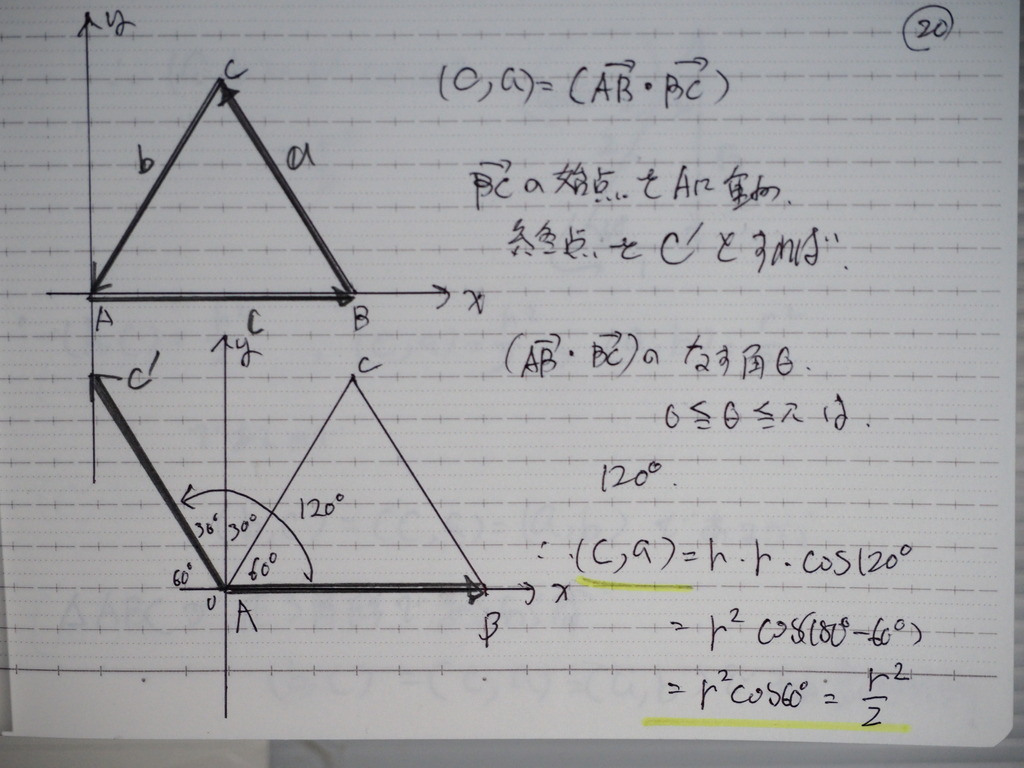 20
y
C
b
a
A
c
B
x
(c, a) = (AB・BC)
BCの始点をAに重ね、
終点をC'とすれば、
y
C'
C
(AB・BC)のなす角θ.
0≦θ≦πは、
120°.
30° 30° 120°
60° 60°
0 A
B
x
∴(c, a) = r・r・cos120°
= r² cos(180°-60°)
= r² cos60° = r²/2